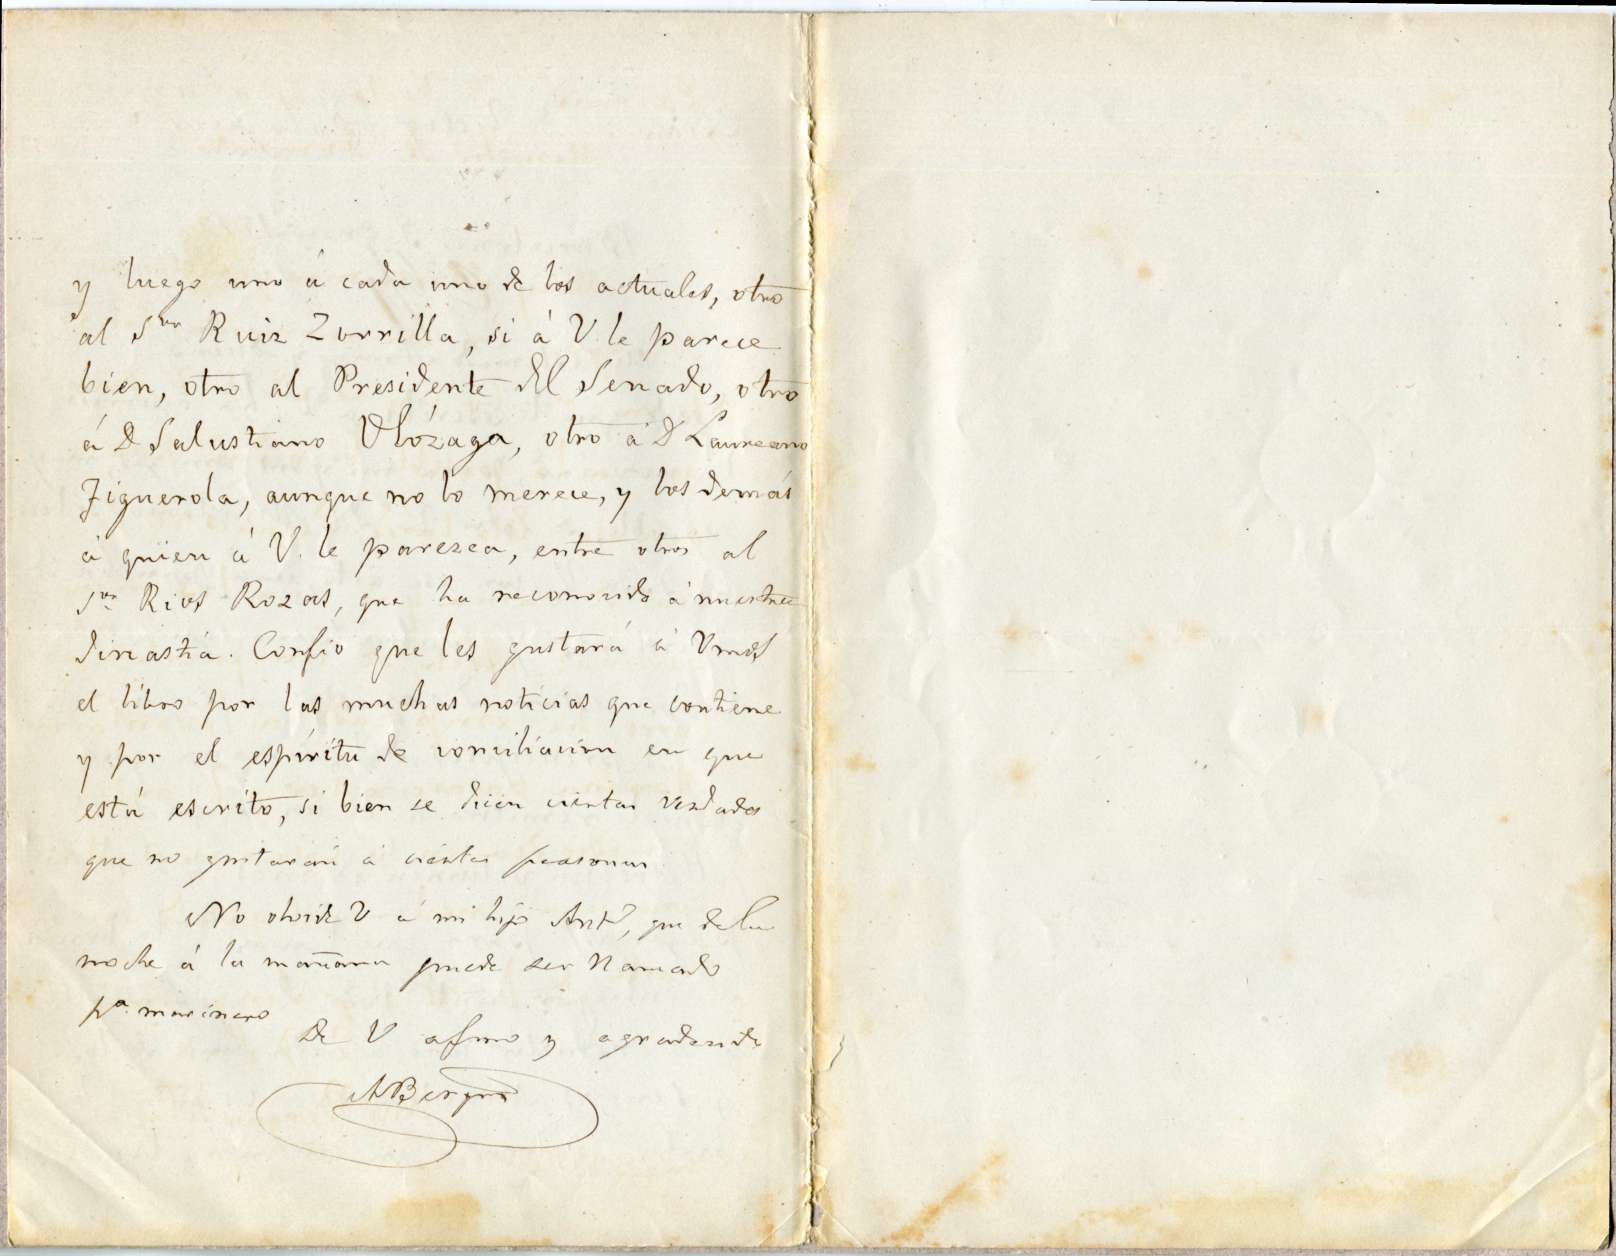 y luego uno á cada uno de los actuales, otro
al Sor Ruiz Zorrilla, si á V. le parece
bien, otro al Presidente del Senado, otro
á D Salustiano Olózaga, otro á D Laureano
Figuerola, aunque no lo merece, y los demás
á quien á V. le parezca, entre otros al
Sor Rios Rozas, que ha reconocido á nuestra
dinastía. Confío que les gustará á Vmds
el libro por las muchas noticias que contiene
y por el espíritu de conciliación en que
está escrito, si bien se dicen ciertas verdades
que no gustarán á ciertas personas.
No olvide V á mi hijo Anto, que de la
noche á la mañana puede ser llamado
pa marinero
De V afmo y agradecido
ABergnes